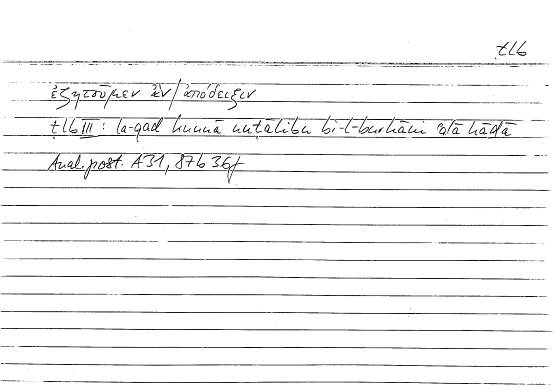 ṭlb
ἐζητοῦμεν ἂν / ἀπόδειξιν
ṭlb III : la-qad kunnā nuṭālibu bi-l-burhāni ʿalā hāḏā
Anal. post. A31, 87b36f